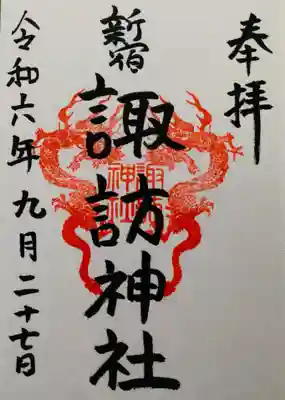 奉拝
新宿
諏訪神社
令和六年九月二十七日